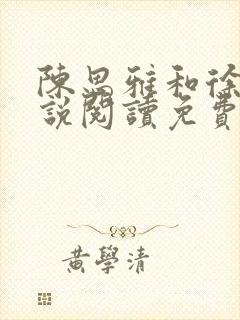 陳思雅和徐
說閱讀免費
黃學清